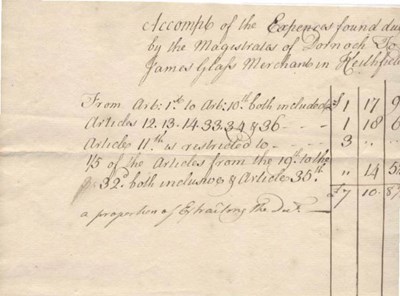 Accompt of the Expences found due
by the Magistrates of Dornoch To
James Glass Merchant in Heithfield
From Art: 1st to Art: 10th both included £ 1 17 9
Articles 12. 13. 14. 33. 34 & 36 - - - 1 18 6
Article 11th is restricted to - - - 3 " "
1/5 of the Articles from the 19th to the
32d both inclusive & Article 35th " 14 5
£7 10 8
a proportion of Extracting the